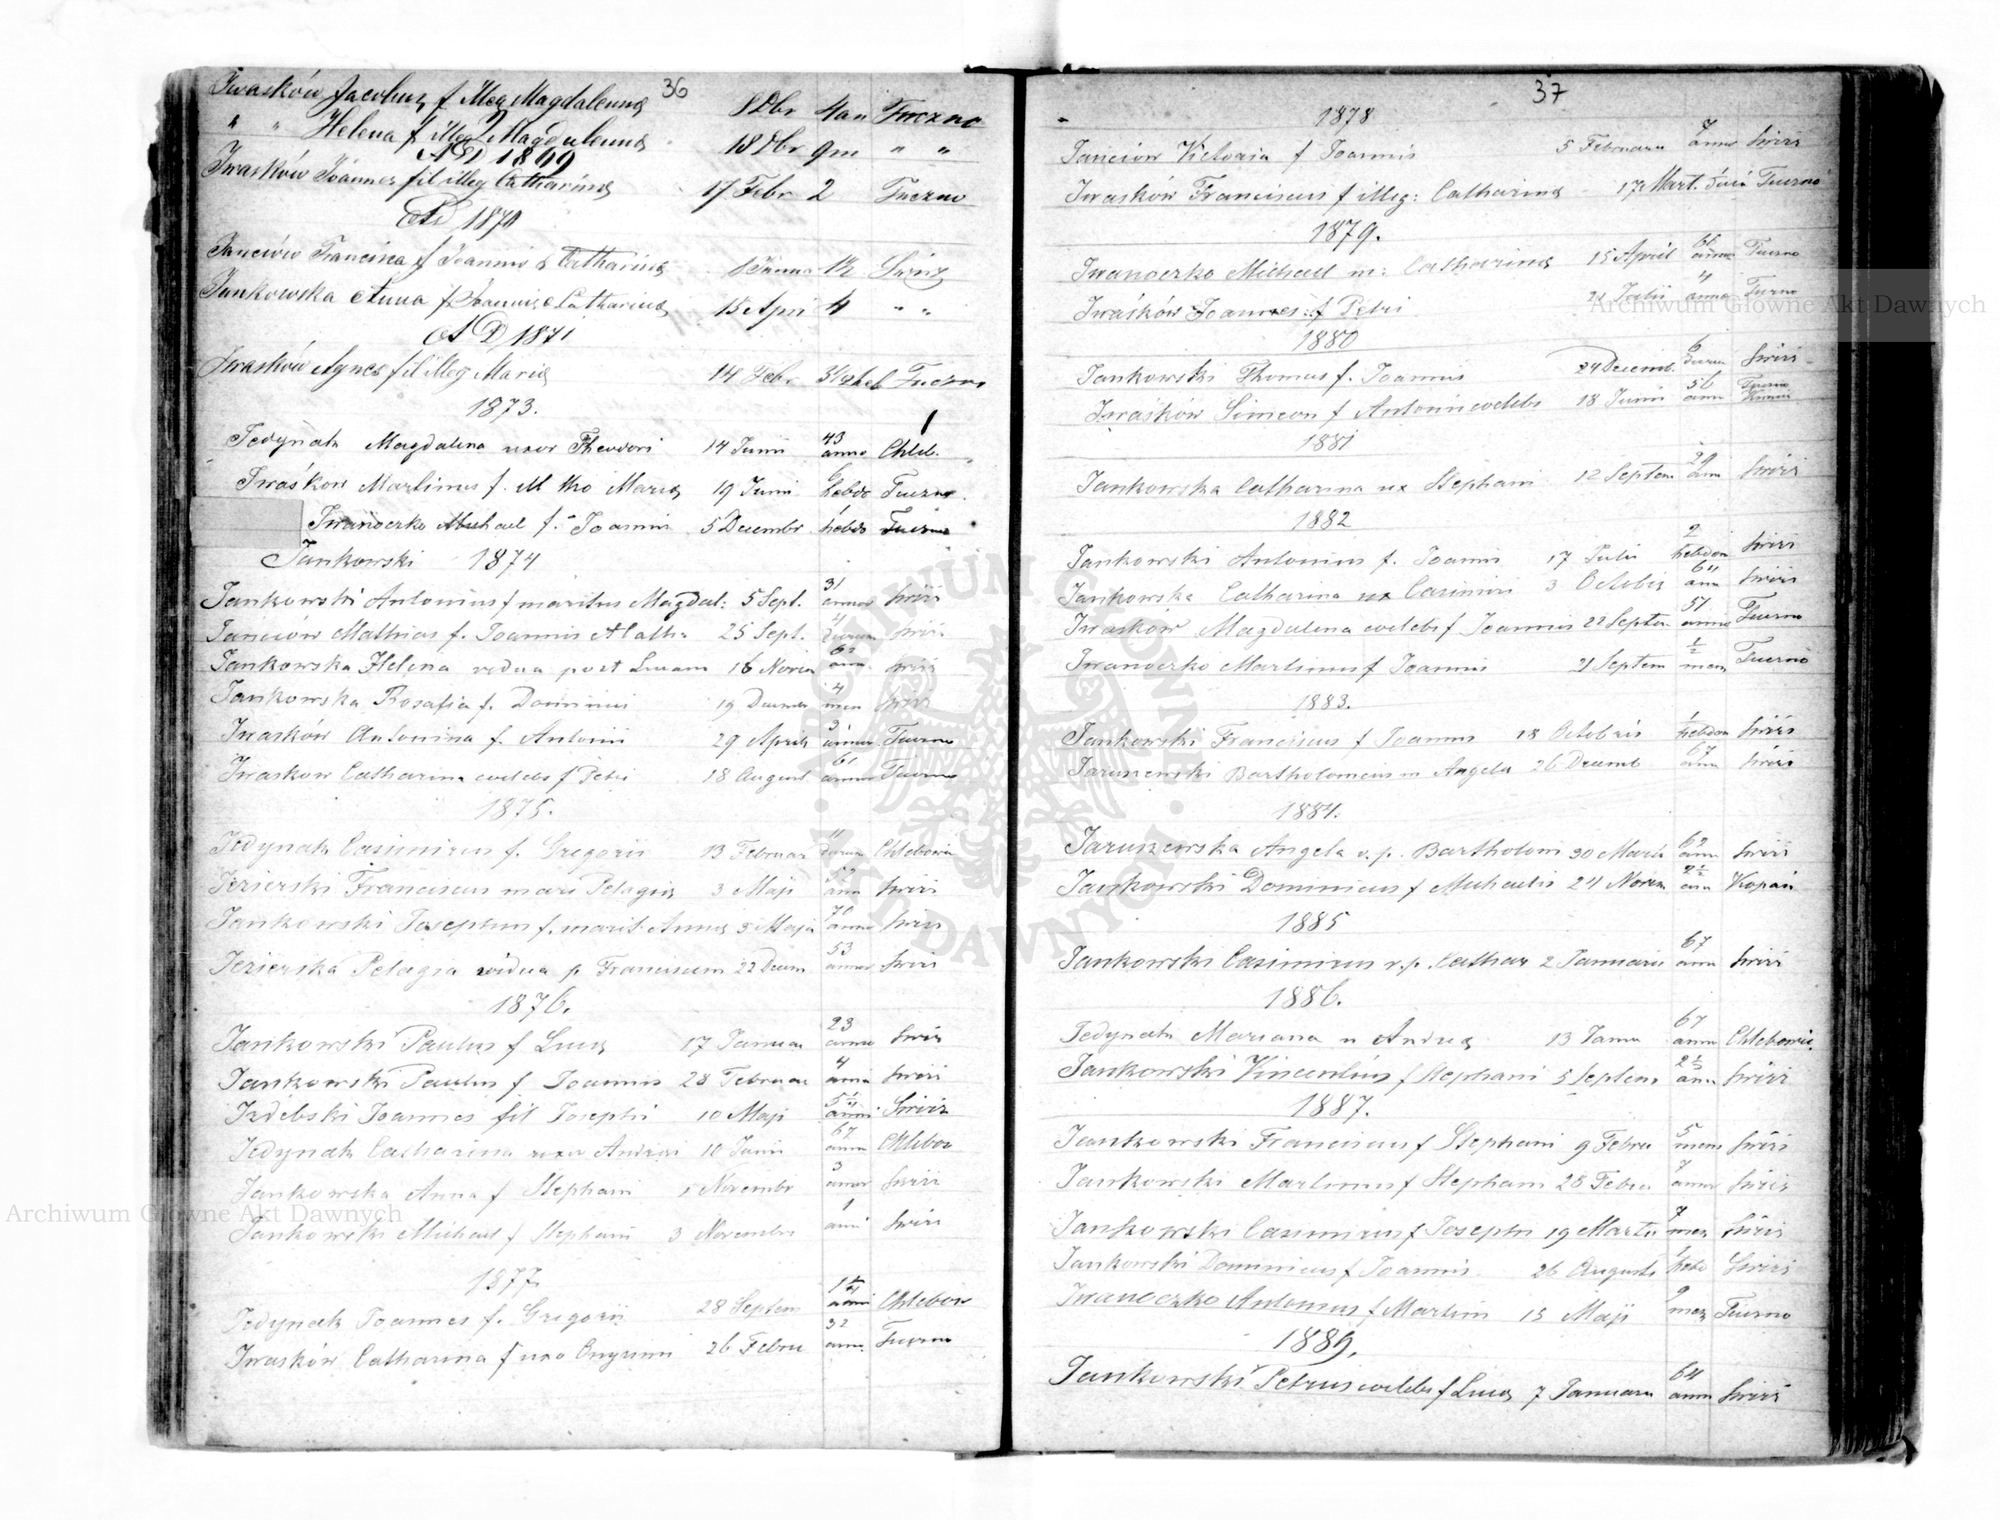 36
Iwasków Jacobus f illeg Magdalenae 8 Dbr 4 an Tuczno
" " Helena f illeg Magdalenae 18 Dbr 9m " "
AD 1869
Iwasków Joannes fil illeg Catharinae 17 Febr 2 Tuczno
AD 1870
Janciów Francisca f Joannis & Catharinae 8 Janua 1½ Świrz
Jankowska Anna f Joannis & Catharinae 15 Apri 4 " "
A D 1871
Iwasków Agnes fil illeg Maria 14 Febr Tuczno
1873.
Jedynak Magdalena uxor Theodori 14 Junii 43 anno Chleb.
Iwaśkow Martinus f. Maria 19 Junii 6 hebdo Tuczno.
Iwanoczko Michael f. Joannis 5 Decembr hebdo Tuczno
Jankowski 1874
Jankowski Antonius f maritus Magdal: 5 Sept. 31 annor Świrz
Janciów Mathias f. Joannis 25 Sept. Świrz
Jankowska Helena vidua post Lucam 16 Novem ann. Świrz
Jankowska Rosalia f. Dominici 19 Decemb 4 men Świrz
Iwasków Antonina f. Antonii 29 Aprili 3 annor Tuczno
Iwaskow Catharina coelebs f Petri 18 August 61 annor Tuczno
1875.
Jedynak Casimirus f. Gregorii 13 Februar 11 dierum Chlebowi
Jezierski Franciscus mari Pelagiae 3 Maji ann Świrz
Jankowski Josephus f. marit. Annae 3 Maja anno Świrz
Jezierska Pelagia vidua p Franciscum 22 Decem 53 annor Świrz
1876.
Jankowski Paulus f Lucae 17 Januar 23 anno Świrz
Jankowski Paulus f Joannis 28 Februar 4 anni Świrz
Izdebski Joannes fil Josephi 10 Maji anni Świrz
Jedynak Catharina uxor Andreae 10 Junii 67 anno Chlebow
Jankowska Anna f Stephani 1 Novembr 3 annor Świrz
Jankowski Michael f Stephani 3 Novembr 1 anni Świrz
1877
Jedynak Joannes f. Gregorii 28 Septem anni Chlebow
Iwasków Catharina f uxo 26 Febru 32 ann. Tuczno
37
1878
Janciów Victoria f Joannis 5 Februar 7 anno Świrz
Iwasków Franciscus f illeg: Catharinae 17 Mart. Tuczno
1879.
Iwanoczko Michael m: Catharinae 15 April anno Tuczno
Iwasków Joannes: f Petri 21 Julii 4 anno Tuczno
1880
Jankowski Thomas f. Joannis 24 Decemb. 6 dierum Świrz
Iwaśków Simeon f Antonii coelebs 18 Junii 56 ann Tuczno
1881
Jankowska Catharina ux Stephani 12 Septem ann Świrz
1882
Jankowski Antonius f. Joannis 17 Julii 2 hebdom Świrz
Jankowska Catharina ux Casimiri 3 Octobris 64 ann Świrz
Iwasków Magdalena coelebs f Joannis 22 Septem 51 annis Tuczno
Iwanoczko Martinus f Joannis 21 Septem ½ mens Tuczno
1883.
Jankowski Franciscus f Joannis 18 Octobris 1 hebdom Świrz
Jaruszewski Bartholomeus m Angela 26 Decemb 67 ann Świrz
1884.
Jaruszewska Angela v. p. Bartholom 30 Martii 62 ann Świrz
Jankowski Dominicus f Michaelis 24 Novem 2½ ann Kopań
1885
Jankowski Casimirus v. p. Cathar 2 Januarii 67 ann Świrz
1886.
Jedynak Mariana u Andreae 13 Janu 67 annor Chlebowic.
Jankowski Vincentius f Stephani 5 Septem 2½ ann Świrz
1887.
Jankowski Franciscus f Stephani 9 Febru 5 mens Świrz
Jankowski Martinus f Stephani 28 Febru 7 annor Świrz
Jankowski Casimirus f Josephi 19 Martii 7 mens Świrz
Jankowski Dominicus f Joannis 26 Augusti 1 hebd Świrz
Iwanoczko Antonius f Martini 15 Maji 9 mens Tuczno
1889.
Jankowski Petrus coelebs f Lucae 7 Januarii 64 annor Świrz
Archiwum Główne Akt Dawnych
Archiwum Główne Akt Dawnych
ARCHIWUM GŁÓWNE AKT DAWNYCH